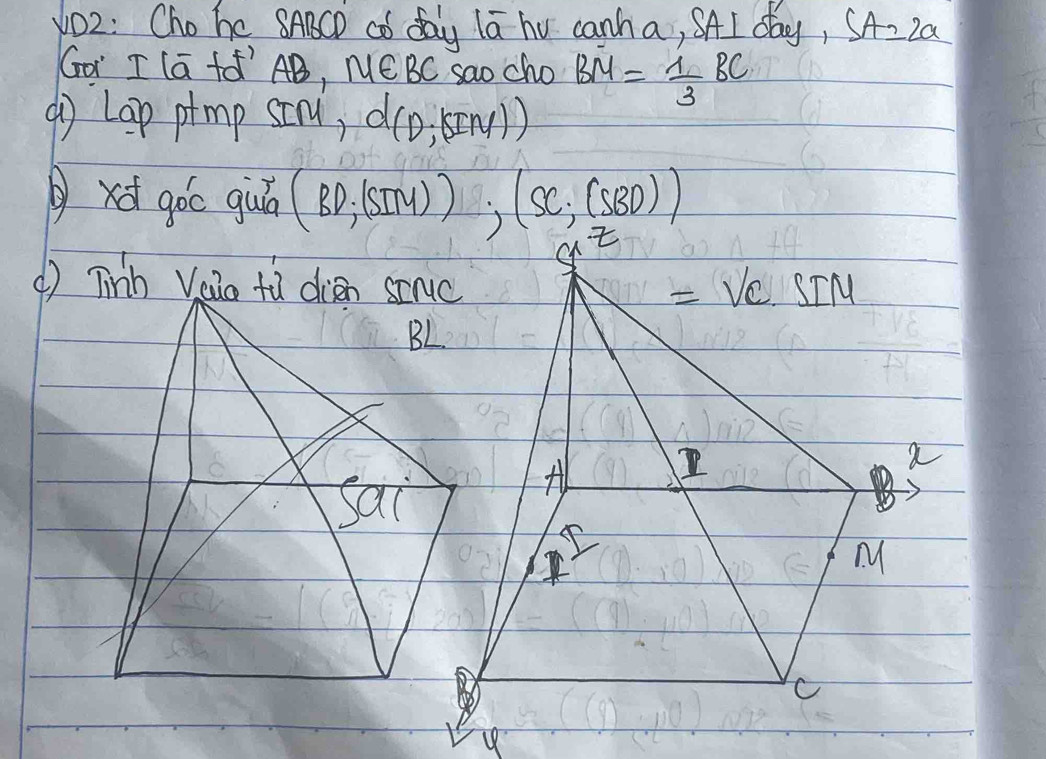 VD2: Cho hc SABCD có đáy là hv cạnh a, SA⊥ đáy, SA=2a
Gọi I là tđ' AB, M∈BC sao cho BM = 1/3 BC
a) Lập ptmp SIM, d(D;(SIM))
b) Xđ góc giữa (BD;(SIM)); (SC; (SBD))
c) Tính V của tứ diện SIMC = VC.SIM
BL
S z
A I B x
Sai
I M
B C
y